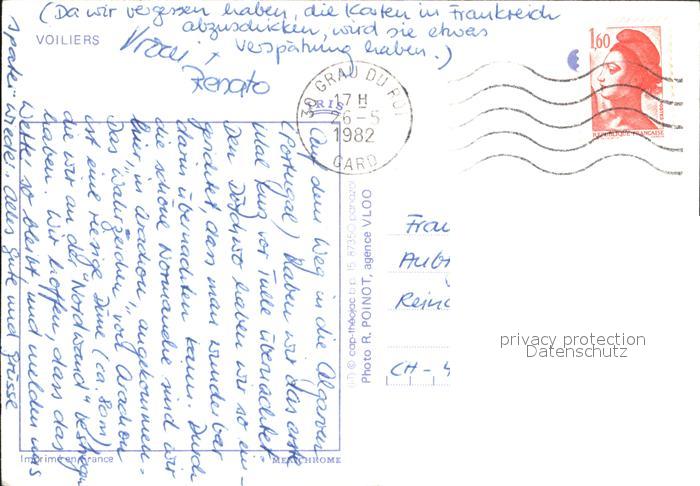 (Da wir vergessen haben, die Karten in Frankreich
abzuschicken, wird sie etwas
Verspätung haben.)
VOILIERS
Vroni +
Renato
30 GRAU DU ROI
17 H
26-5
1982
GARD
1,60
REPUBLIQUE FRANÇAISE
Auf dem Weg in die Algarve
(Portugal) haben wir das erste
Mal kurz vor Tulle übernachtet.
Den Döschwo haben wir so ein-
gerichtet, dass man wunderbar
darin übernachten kann. Durch
die schöne Normandie sind wir
hier, in Arcachon, angekommen.
Das "Wahrzeichen" von Arcachon
ist eine riesige Düne (ca. 80m)
die wir an der "Nordwand" bestiegen
haben. Wir hoffen, dass das
Wetter so bleibt und melden uns
später wieder. Alles Gute und Grüsse
cap-théojac b.p. 15 87350 panazol
Photo R. POINOT, agence VLOO
Frau
Reine
CH - 4
privacy protection
Datenschutz
Imprimé en France
MEXICHROME